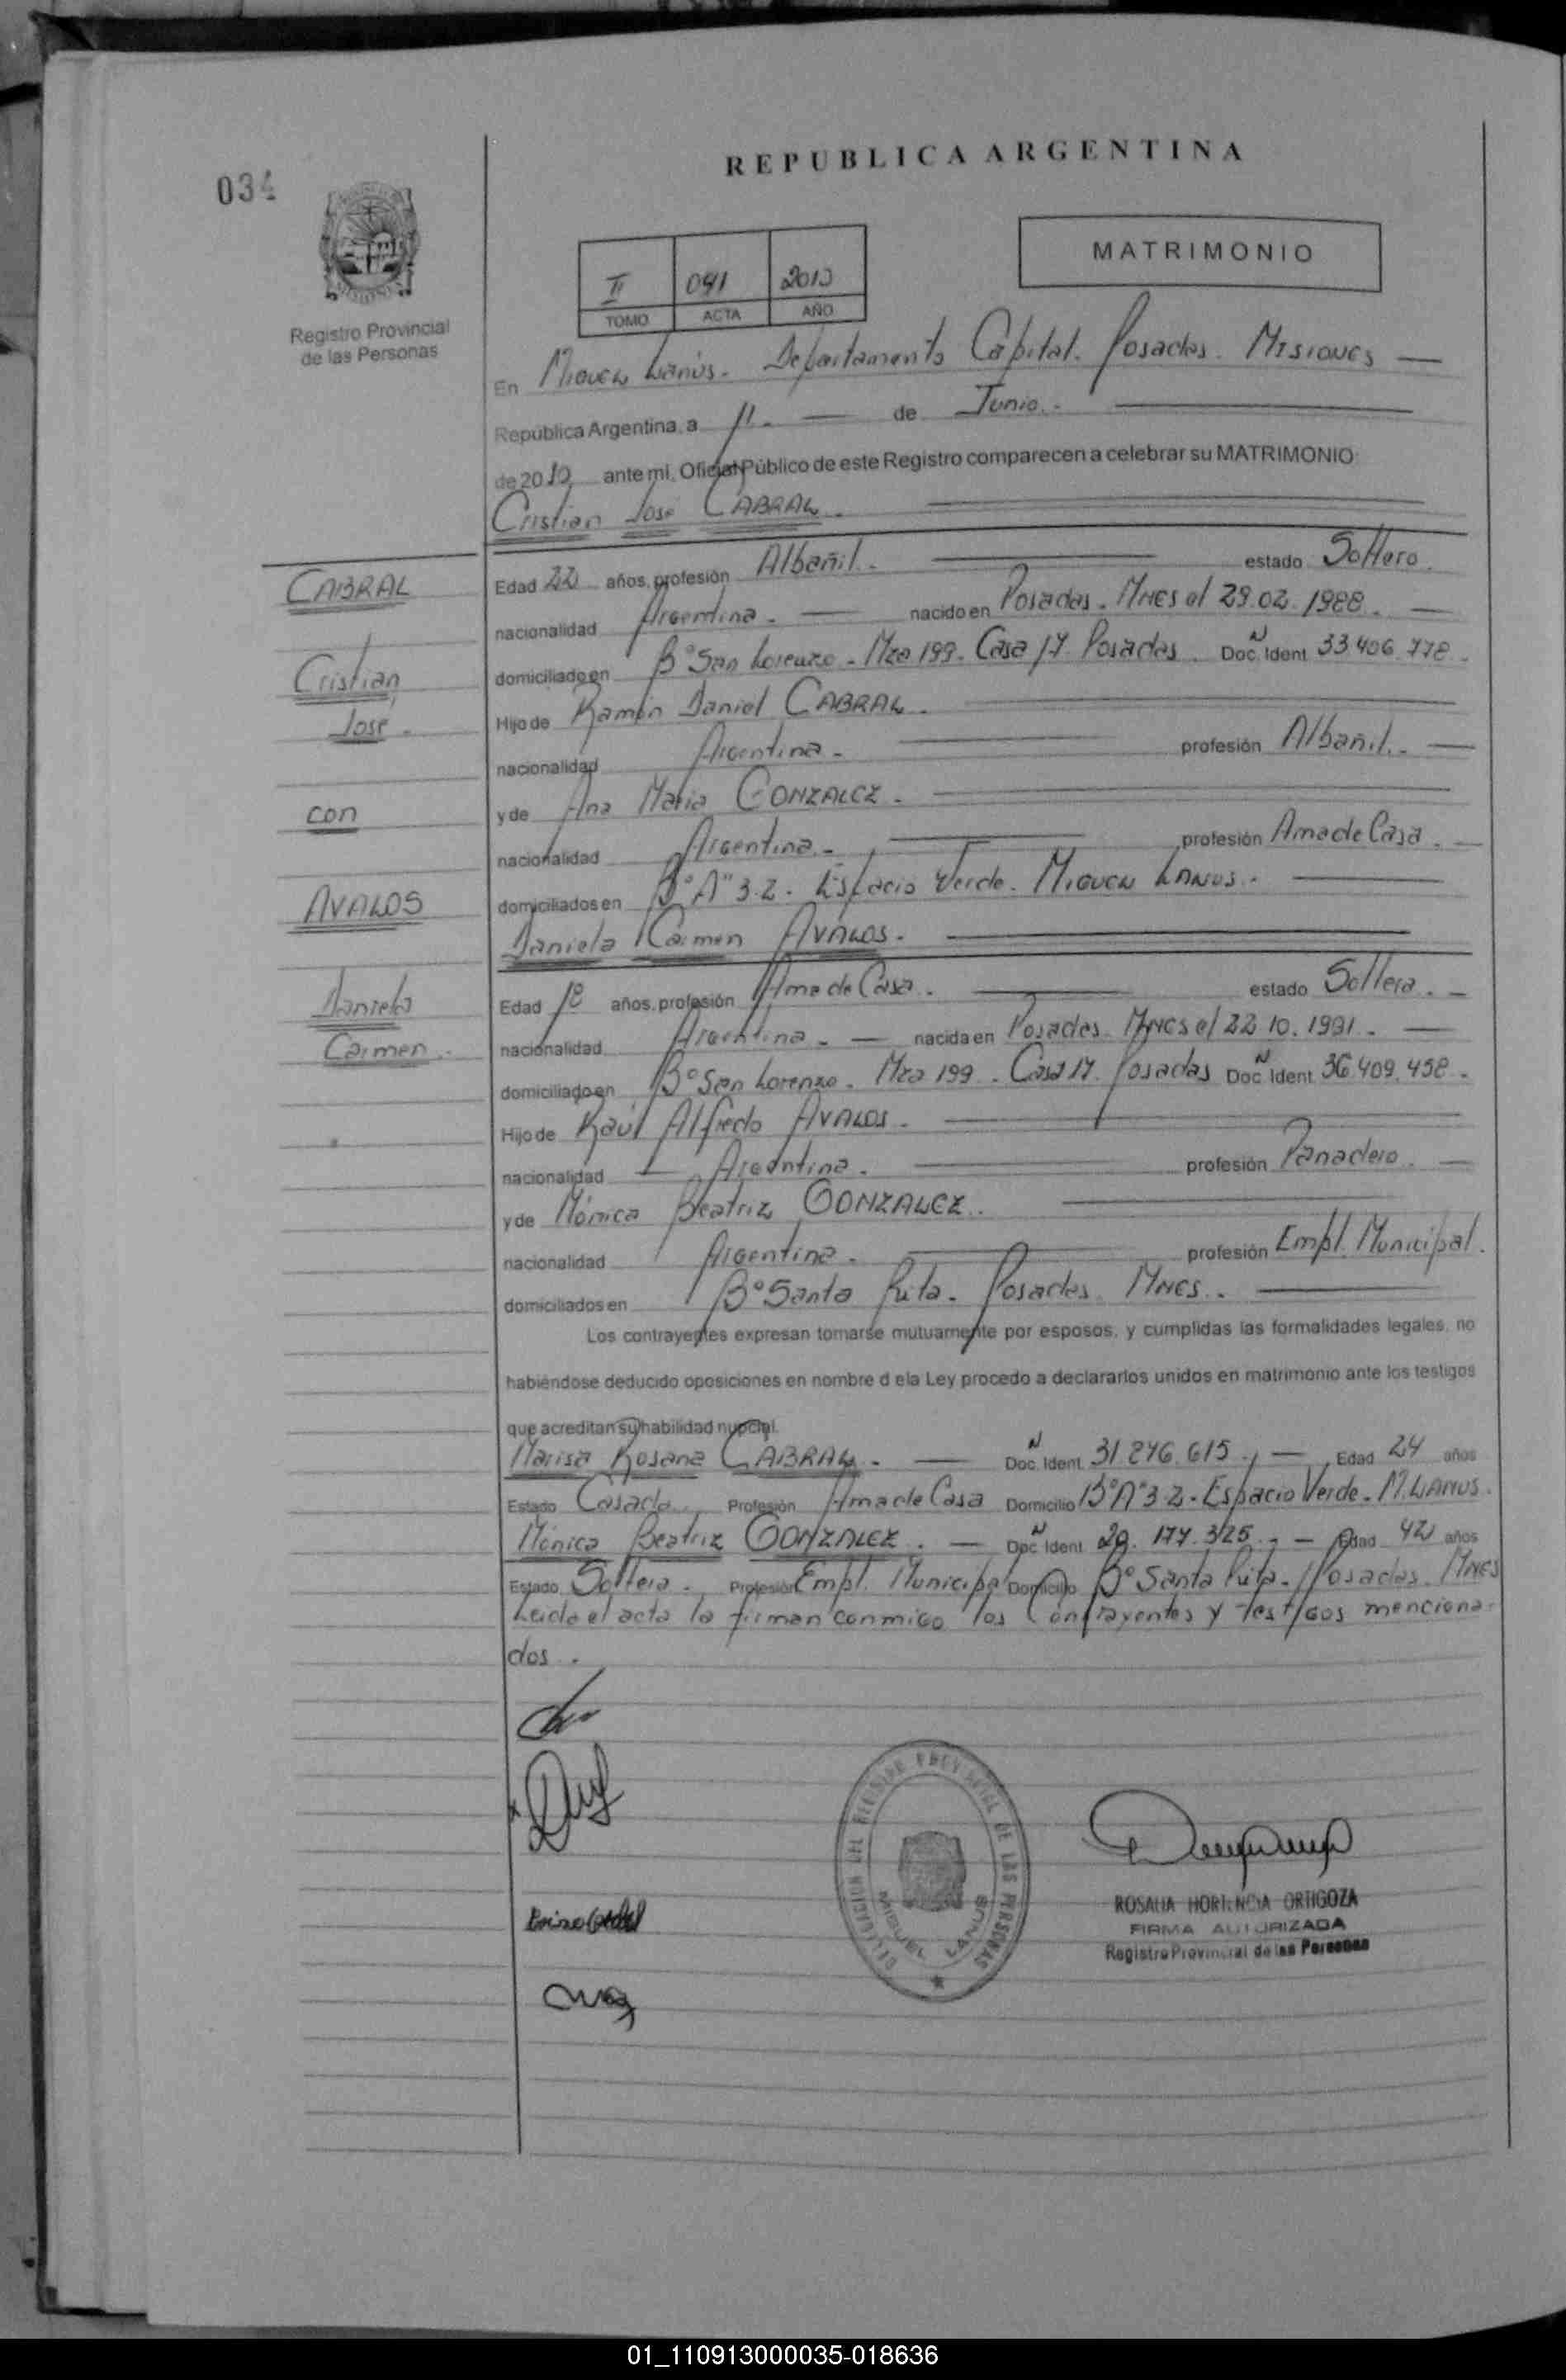 REPUBLICA ARGENTINA
034
MATRIMONIO
II 041 2010
TOMO ACTA AÑO
Registro Provincial
de las Personas
En Miguel Lanús. Departamento Capital. Posadas. Misiones
República Argentina, a 11. de Junio.
de 2010 ante mi, Oficial Público de este Registro comparecen a celebrar su MATRIMONIO:
Cristian José CABRAL.
CABRAL
Cristian
José.
con
AVALOS
Daniela
Carmen.
Edad 22 años, profesión Albañil. estado Soltero.
nacionalidad Argentina. nacido en Posadas. Mnes el 29.02.1988.
domiciliado en B° San Lorenzo. Mza 199. Casa 17. Posadas. Doc. Ident N 33.406.778.
Hijo de Ramón Daniel CABRAL.
nacionalidad Argentina. profesión Albañil.
y de Ana Maria GONZALEZ.
nacionalidad Argentina. profesión Ama de Casa.
domiciliados en B° "A" 3.2. Espacio Verde. Miguel Lanus.
Daniela Carmen AVALOS.
Edad 18 años, profesión Ama de Casa. estado Soltera.
nacionalidad Argentina. nacida en Posadas. Mnes el 22.10.1991.
domiciliado en B° San Lorenzo. Mza 199. Casa 17. Posadas Doc. Ident N 36.409.458.
Hijo de Raúl Alfredo AVALOS.
nacionalidad Argentina. profesión Panadero.
y de Mónica Beatriz GONZALEZ.
nacionalidad Argentina. profesión Empl. Municipal.
domiciliados en B° Santa Rita. Posadas. Mnes.
Los contrayentes expresan tomarse mutuamente por esposos, y cumplidas las formalidades legales, no
habiéndose deducido oposiciones en nombre d ela Ley procedo a declararlos unidos en matrimonio ante los testigos
que acreditan su habilidad nupcial.
Marisa Rosana CABRAL. Doc. Ident. N 31.246.615. Edad 24 años
Estado Casada. Profesión Ama de Casa Domicilio B° "A" 3.2. Espacio Verde. M. Lanus.
Mónica Beatriz GONZALEZ. Doc. Ident N 20.177.325. Edad 42 años
Estado Soltera. Profesión Empl. Municipal Domicilio B° Santa Rita. Posadas. Mnes
Leida el acta la firman conmigo los Contrayentes y testigos menciona-
dos.
DELEGACION DEL REGISTRO PROVINCIAL DE LAS PERSONAS
MIGUEL LANUS
ROSALIA HORTENCIA ORTIGOZA
FIRMA AUTORIZADA
Registro Provincial de las Personas
01_110913000035-018636